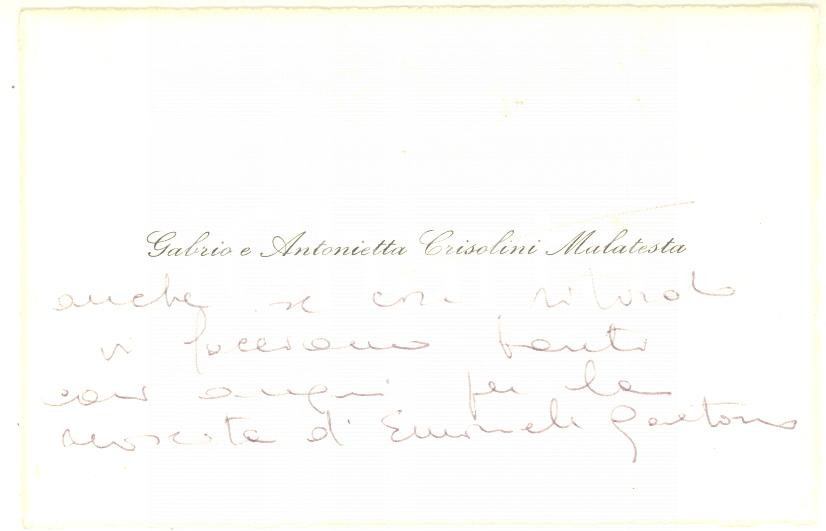 Gabrio e Antonietta Crisolini Malatesta
anche se con ritardo
vi facciamo tanti
cari auguri per la
nascita di Emanuele Gaetano